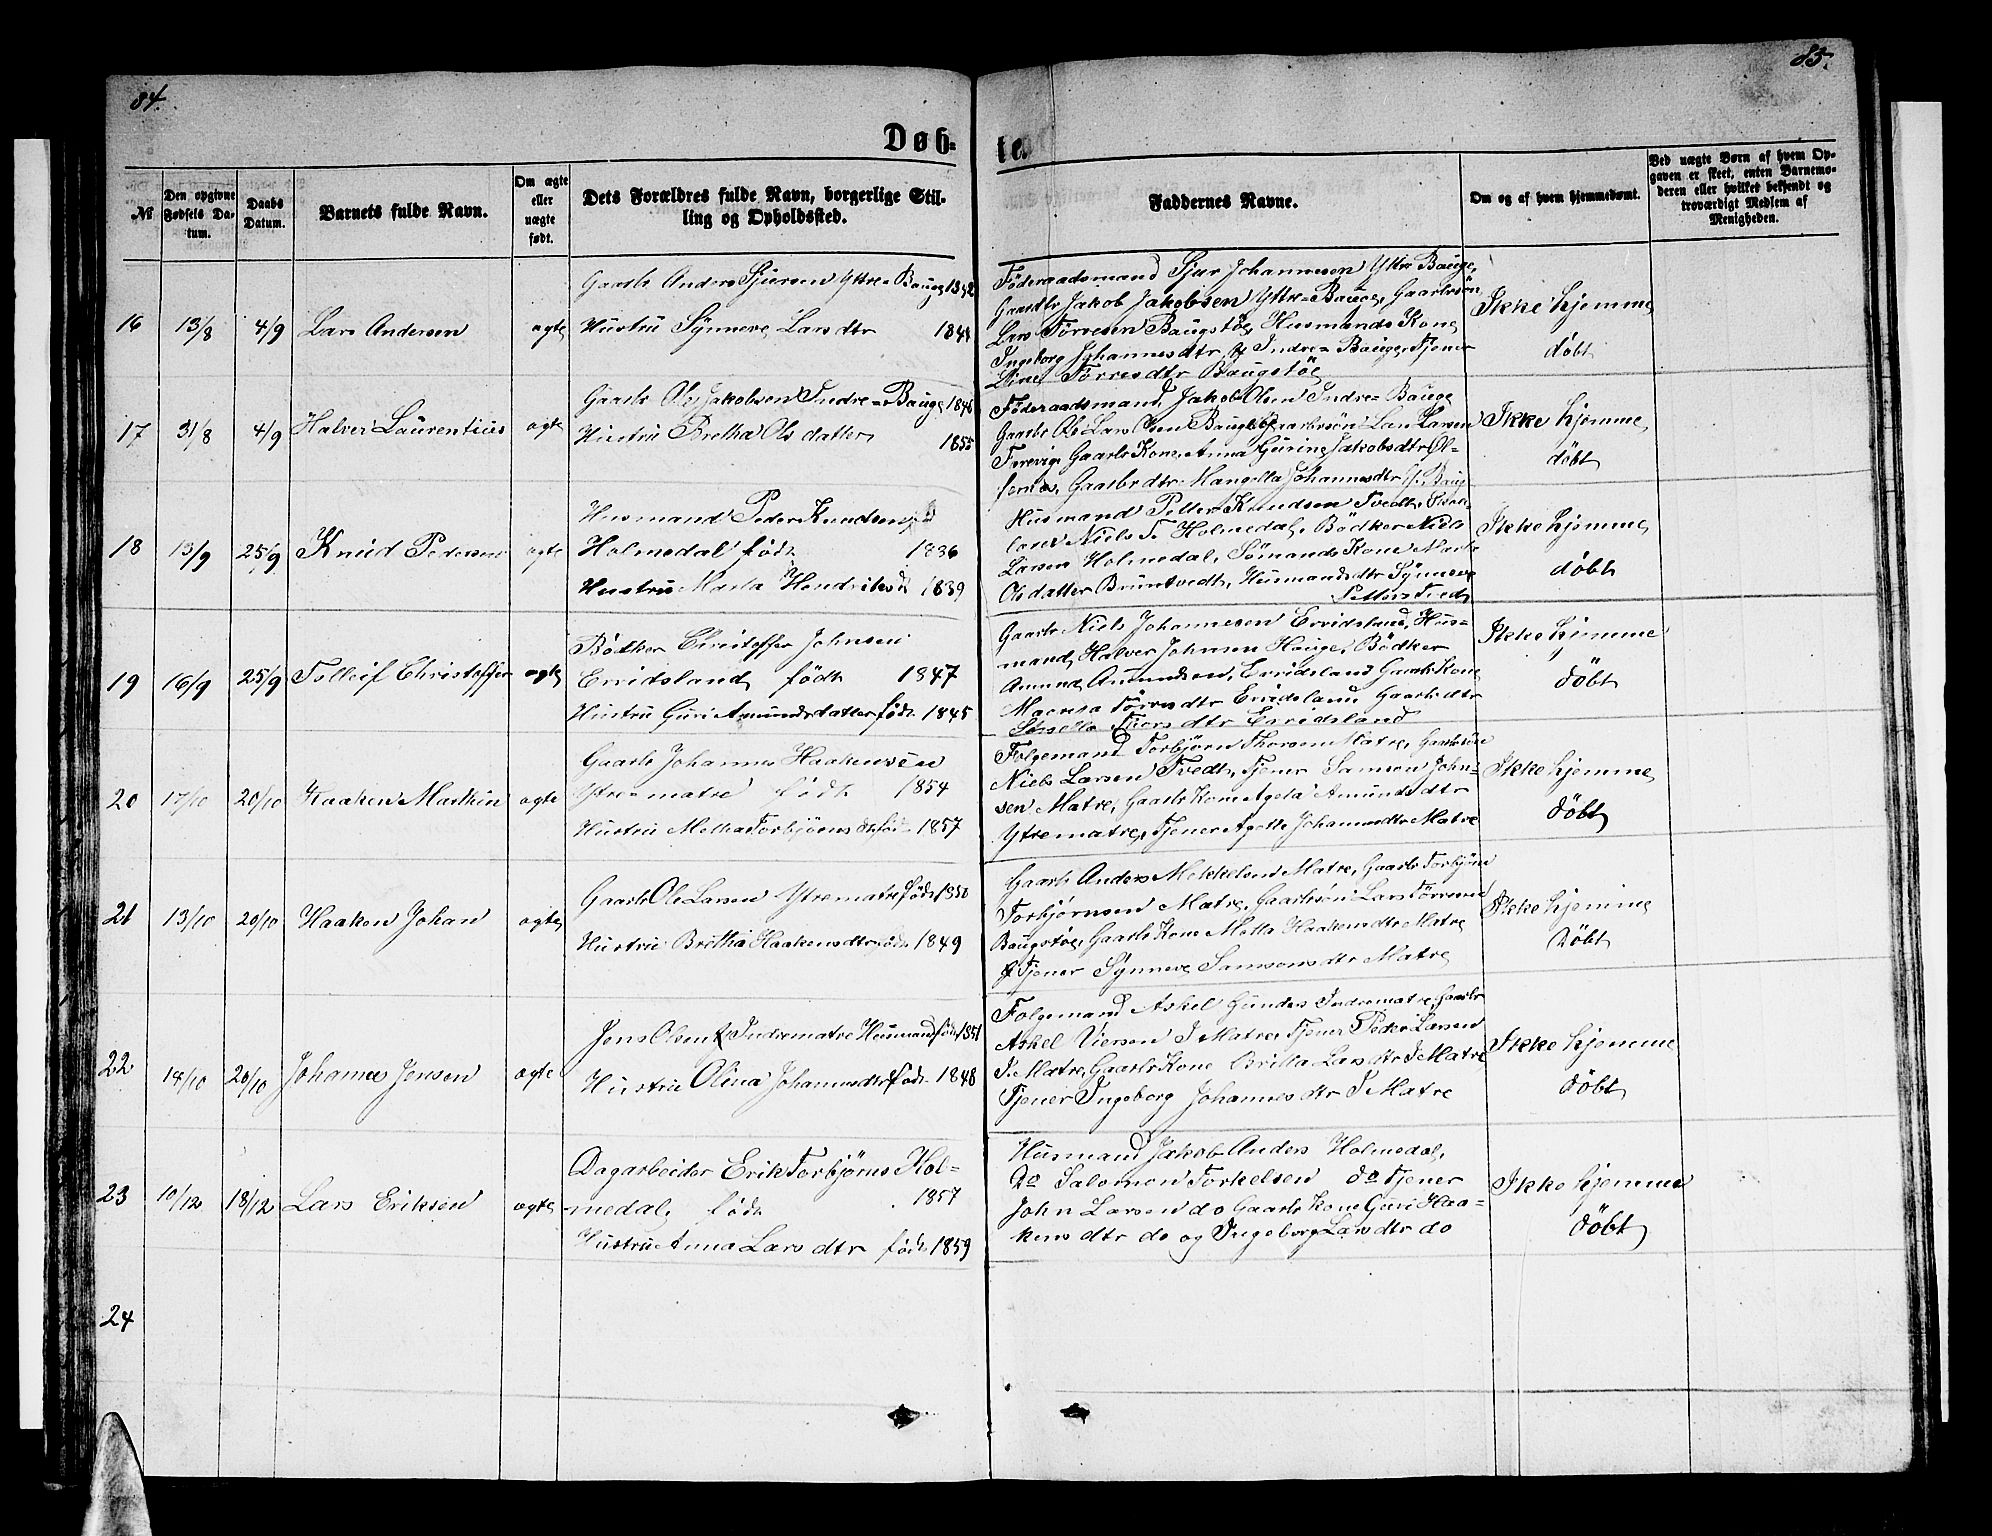 84.
85.
Døb-
te
№
Den opgivne Fødsels Datum.
Daabs Datum.
Barnets fulde Navn.
Om ægte eller uægte født.
Dets Forældres fulde Navn, borgerlige Stilling og Opholdssted.
Faddernes Navne.
Om og af hvem hjemmedømt.
Ved uægte Børn af hvem Opgaven er skeet, enten Barnemoderen eller hvilket bekjendt og troværdigt Medlem af Menigheden.
16 13/8 4/9 Lars Andersen ægte
Gaarbr Anders Sjursen Yttre=Bauge
Hustru Synneve Larsdtr 1844
Föderaadsmand Sjur Johannesen Yttre Bauge,
Gaardbr Jakob Jakobsen Yttre=Bauge, Gaarbrsön
Lars Törresen Baugstöe, Husmands Kone
Ingeborg Johannesdtr Indre=Bauge, Tjener
Line Törresdtr Baugstöe
Ikke hjemme
döbt
17 31/8 4/9 Halver Laurentius ægte
Gaarbr Ole Jakobsen Indre=Bauge 1846
Hustru Bretha Olsdatter 1855
Föderaadsmand Jakob Olsen Indre=Bauge
Gaarbr Ole Larsen Bauge, Gaarbrsön Lars Larsen
Gaarbr Kone Anna Gurine Jakobsdtr Öl=
fernes, Gaarbr dtr Mangella Johannesdtr
Ikke hjemme
döbt
18 13/9 25/9 Knud Pedersen ægte
Husmand Peder Knudsen
Holmedal födt 1836
Hustru Marta Hendriksdt 1839
Husmand Petter Knudsen Tvedt,
Niels T. Holmedal, Bödker Niels
Larsen Holmedal, Sömands Kone Marta
Olsdatter Bruntvedt, Husmandsdtr Synneve
Petters Tvedt
Ikke hjemme
döbt
19 16/9 25/9 Tolleif Christoffer ægte
Bödker Christoffer Johnsen
Erridsland födt 1847
Hustru Guri Amundsdatter födt 1845
Gaarbr Niels Johannesen Erridsland, Hus=
mand Halver Johnsen Hauge, Bödker
Amund Amundsen, Erridsland Gaarbr Kone
Törresdtr Erridsland Gaarbrdtr
Sjursdtr Erridsland
Ikke hjemme
döbt
20 17/10 20/10 Haaken Marthin ægte
Gaarbr Johannes Haakensen
Ytre=matre födt 1854
Hustru Metha Torbjörnsdtr föd. 1857
Folgemand Torbjörn Thorsen Matre, Gaarbrsön
Niels Larsen Tvedt, Tjener Samson John=
sen Matre, Gaarbr Kone Agela Amundsdtr
Ytrematre, Tjener Agathe Johannesdtr Matre
Ikke hjemme
döbt
21 13/10 20/10 Haaken Johan ægte
Gaarbr Ole Larsen Ytrematre födt 1850
Hustru Bretha Haakensdtr födt 1849
Gaarbr Anders Mekkelsen Matre, Gaarbr Torbjörn
Torbjörnsen Matre, Gaarbrsön Lars Törresen
Baugstöe, Gaarbr Kone Metta Haakensdtr Matre
& Tjener Synneve Samsonsdtr Matre
Ikke hjemme
Döbt
22 14/10 20/10 Johannes Jensen ægte
Jens Olsen Indrematre Husmand födt 1851
Hustru Olina Johannesdtr födt 1848
Folgemand Askel Gunders Indrematre, Gaarbr
Askel Viersen I Matre, Tjener Peder Larsen
I. Matre, Gaarbr Kone Britta Larsdtr I Matre
Tjener Ingeborg Johannesdtr I Matre
Ikke hjemme
döbt
23 10/12 18/12 Lars Eriksen ægte
Dagarbeider Erik Torbjörns Hol=
medal, födt 1857
Hustru Anna Larsdtr födt 1859
Husmand Jakob Anders Holmedal,
Do Salomon Torkelsen do Tjener
John Larsen do Gaarbr Kone Guri Haa=
kensdtr do og Ingeborg Larsdtr do
Ikke hjemme
döbt
24